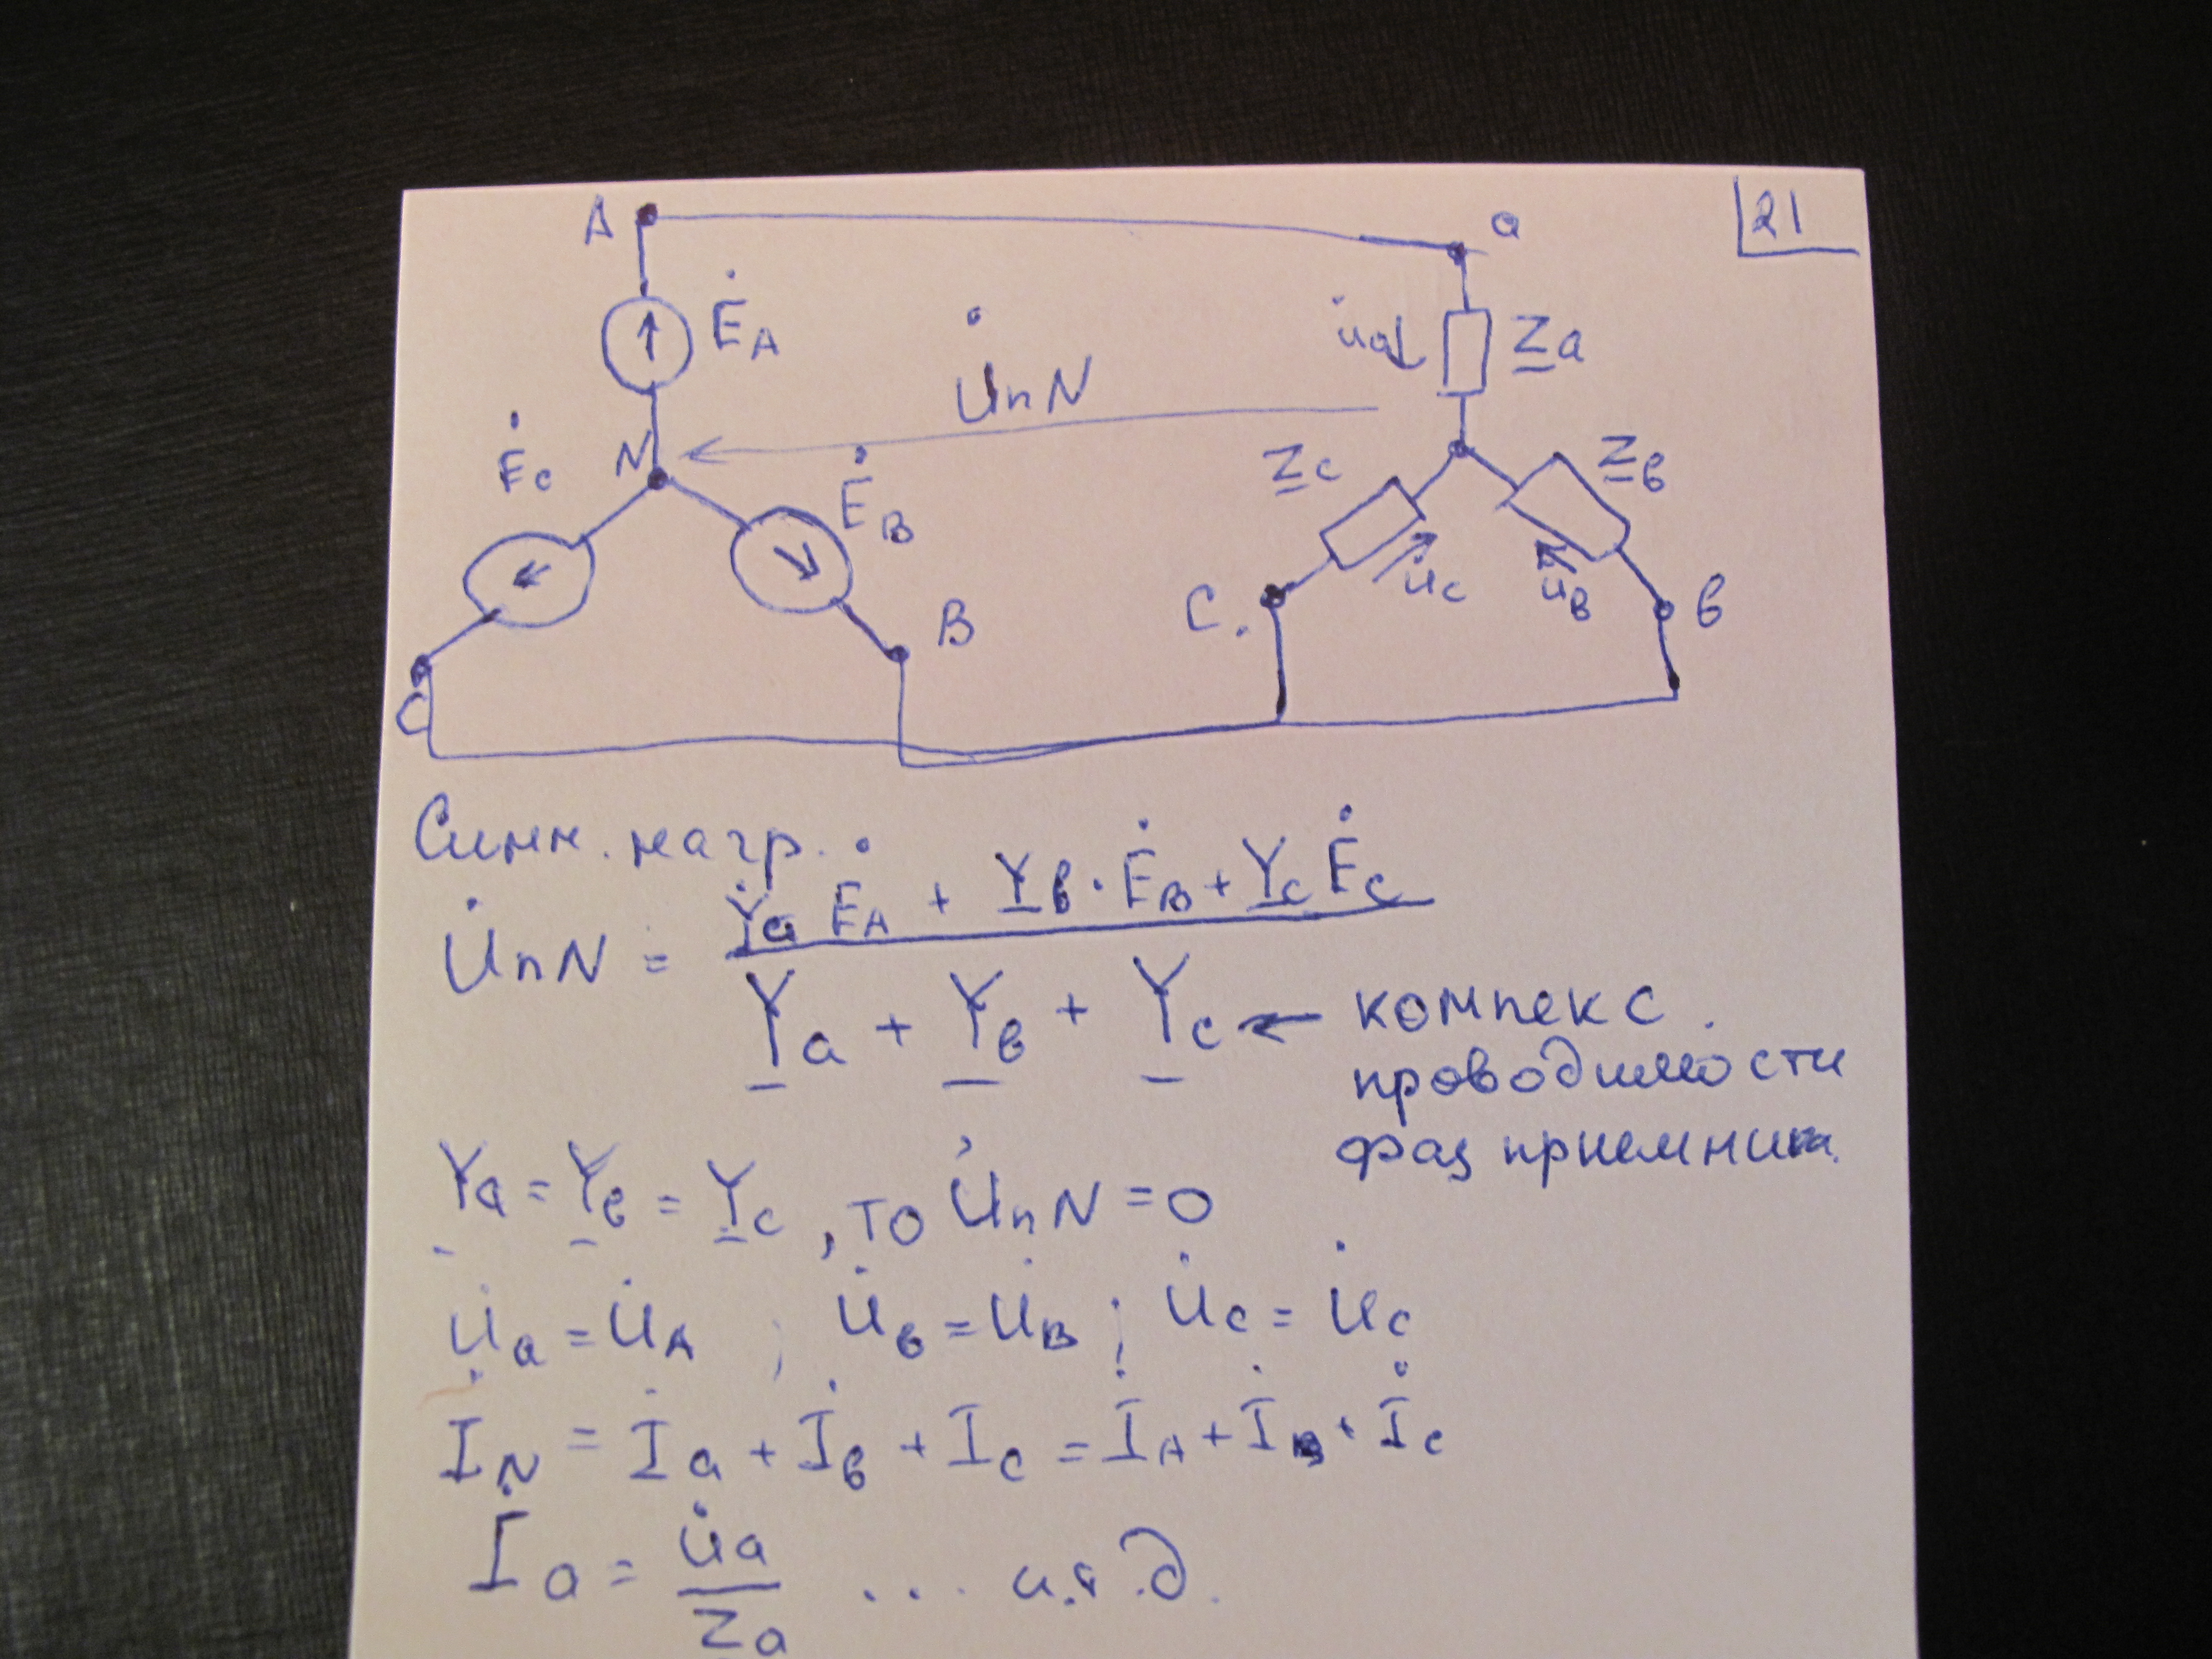 21
A
a
Ė_A
U̇_nN
u̇_a
Z_a
Ė_c
N
Ė_B
Z_c
Z_в
C
B
C.
u̇_c
u_в
в
Симм. нагр.
U̇_nN = (Y_a Ė_A + Y_в · Ė_B + Y_c Ė_c) / (Y_a + Y_в + Y_c) ← компекс.
проводимости
фаз приемника.
Y_a = Y_в = Y_c, то U̇_nN = 0
U̇_a = U̇_A ; U̇_в = U̇_B ; U̇_c = U̇_c
İ_N = İ_a + İ_в + İ_c = İ_A + İ_B + İ_c
İ_a = U̇_a / Z_a ... и.т.д.